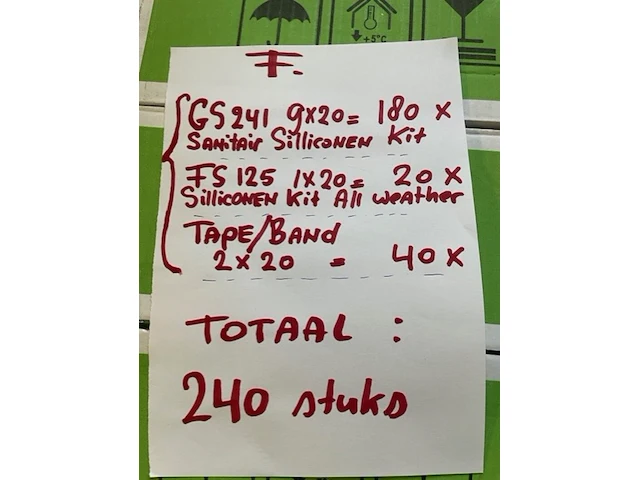 +5°C
F.
GS241 9x20= 180 x
Sanitair Silliconen Kit
FS 125 1x20= 20 x
Silliconen Kit All weather
TAPE/BAND
2x20 = 40 x
TOTAAL :
240 stuks